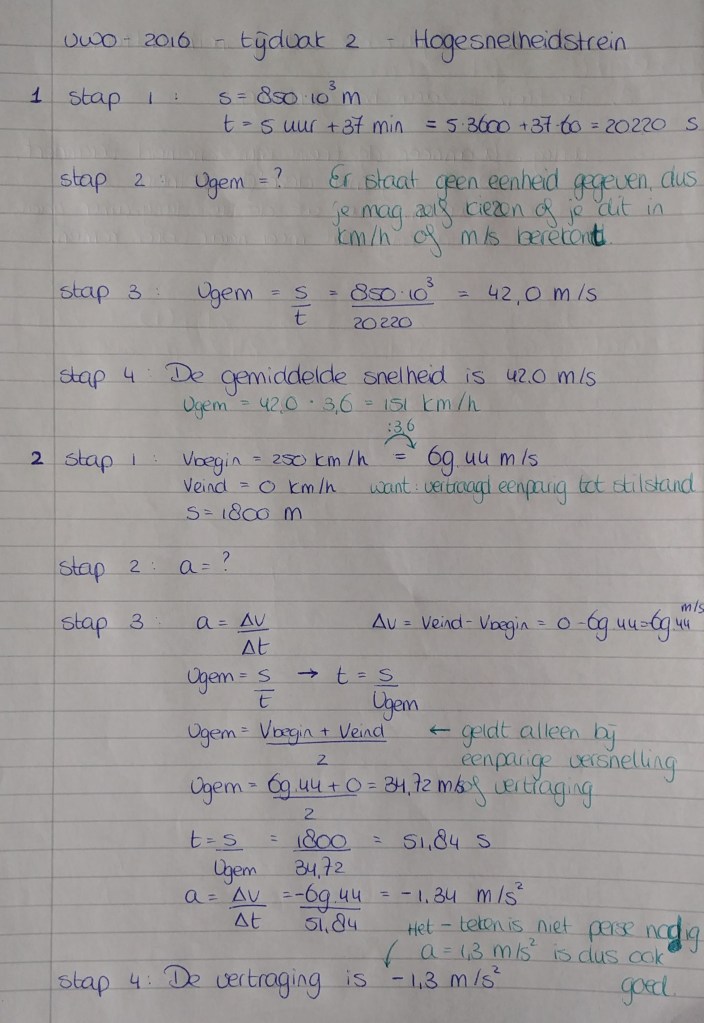 VWO - 2016 - tijdvak 2 - Hogesnelheidstrein
1 stap 1: s = 850·10³ m
t = 5 uur + 37 min = 5·3600 + 37·60 = 20220 s
stap 2: Vgem = ? Er staat geen eenheid gegeven, dus
je mag zelf kiezen of je dit in
km/h of m/s berekent
stap 3: Vgem = s/t = 850·10³/20220 = 42,0 m/s
stap 4: De gemiddelde snelheid is 42.0 m/s
Vgem = 42,0 · 3,6 = 151 km/h
:3,6
2 stap 1: Vbegin = 250 km/h = 69.44 m/s
Veind = 0 km/h want: vertraagd eenparig tot stilstand
s = 1800 m
stap 2: a = ?
stap 3: a = Δv/Δt Δv = Veind - Vbegin = 0 - 69.44 = 69.44 m/s
Vgem = s/t → t = s/Vgem
Vgem = Vbegin + Veind/2 ← geldt alleen bij
eenparige versnelling
Vgem = 69.44 + 0/2 = 34,72 m/s of vertraging
t = s/Vgem = 1800/34,72 = 51,84 s
a = Δv/Δt = -69.44/51,84 = -1.34 m/s²
Het - teken is niet perse nodig
a = 1,3 m/s² is dus ook
stap 4: De vertraging is -1,3 m/s² goed.